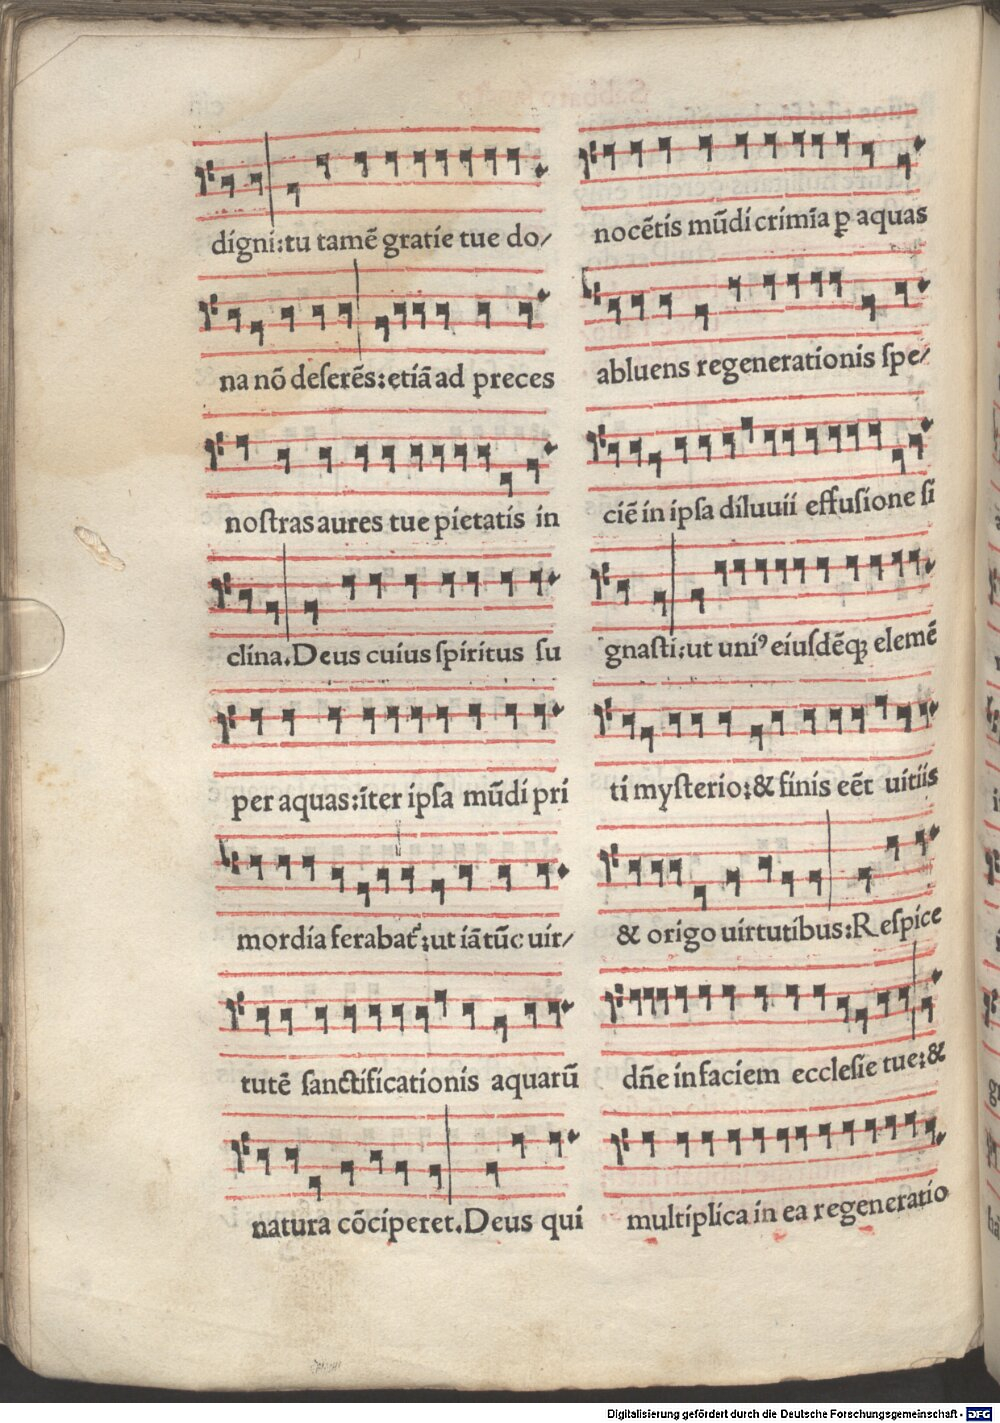 digni:tu tamē gratie tue do/
na nō deſerēs:etiā ad preces
noſtras aures tue pietatis in
clina.Deus cuius ſpiritus ſu
per aquas:iter ipſa mūdi pri
mordia ferabat᷑:ut iā tūc uir/
tutē ſanctificationis aquarū
natura cōciperet.Deus qui
nocētis mūdi crimīa ꝑ aquas
abluens regenerationis ſpe/
ciē in ipſa diluuii effuſione ſi
gnaſti:ut uniꝰ eiuſdēqꝫ elemē
ti myſterio:& finis eēt uitiis
& origo uirtutibus:Reſpice
dn̄e in faciem eccleſie tue:&
multiplica in ea regeneratio
Digitalisierung gefördert durch die Deutsche Forschungsgemeinschaft - DFG